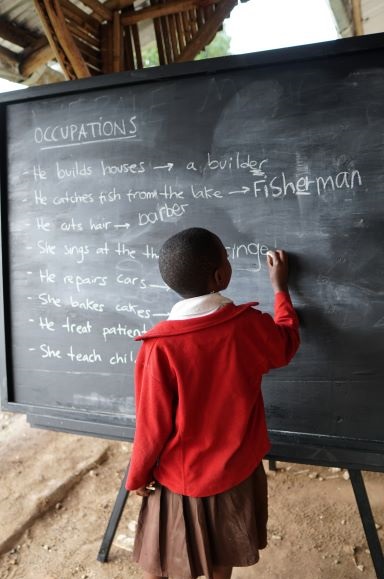 OCCUPATIONS
- He builds houses → a builder
- He catches fish from the lake → Fisherman
- He cuts hair → barber
- She sings at the singe
- He repairs cars →
- She bakes cakes →
- He treat patient
- She teach